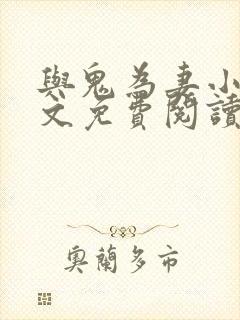 與鬼為妻小
文免費閱讀
奧蘭多市